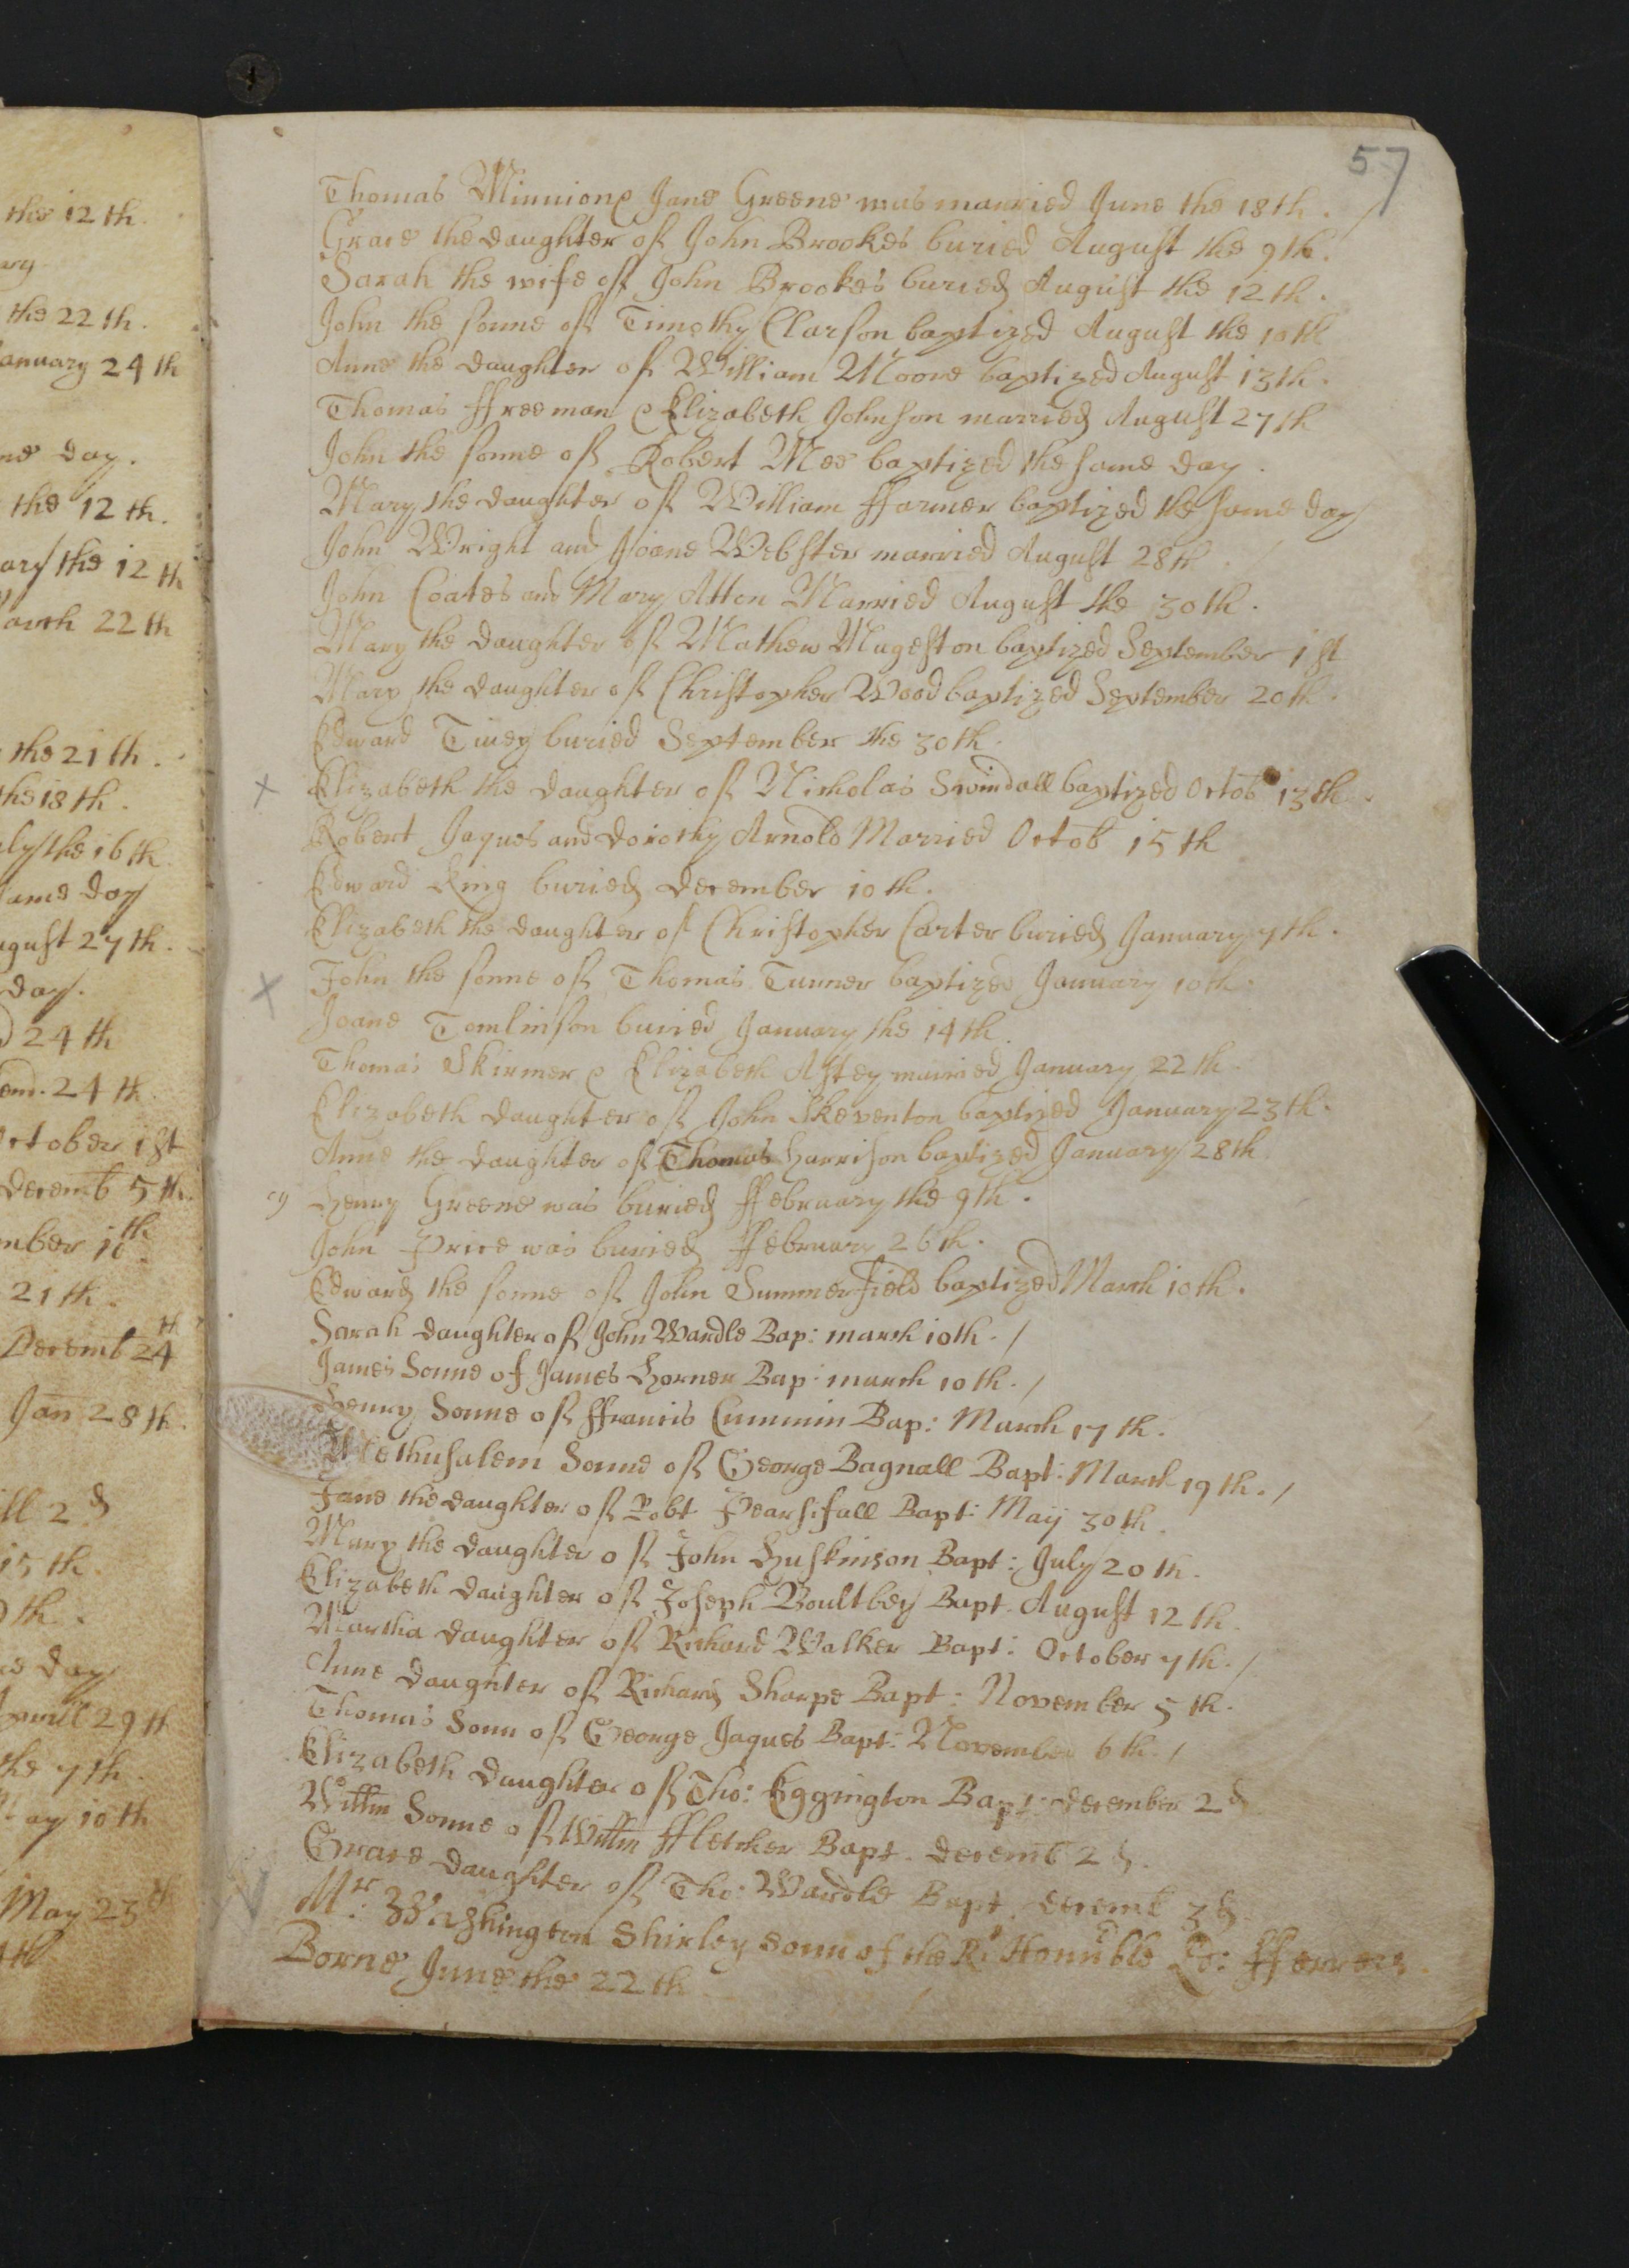 the 12 th.
ary
the 22 th.
anuary 24 th
ne day.
the 12 th.
ary the 12 th
arch 22 th
the 21 th.
the 18 th.
ly the 16 th
same day
ugust 27 th.
day.
24 th
em. 24 th
october 1st
decemb 5 th.
mber 10th.
21 th.
Decemb 24th
Jan 28 th.
ll 2d
15 th.
th.
e day
Aprill 29 th
the 7 th.
May 10 th
May 23th
57
Thomas Minnion & Jane Greene was married June the 18 th.
Grace the daughter of John Brookes buried August the 9 th.
Sarah the wife of John Brookes buried August the 12 th.
John the sonne of Timothy Clarson baptized August the 10 th
Anne the daughter of William Moore baptized August 13 th.
Thomas ffreeman & Elizabeth Johnson married August 27 th
John the sonne of Robert Mee baptized the same day.
Mary the daughter of William ffarmer baptized the same day
John Wright and Joane Webster married August 28 th
John Coates and Mary Atton Married August the 30 th.
Mary the daughter of Mathew Mugeston baptized September 1st
Mary the daughter of Christopher Wood baptized September 20 th.
Edward Tivey buried September the 30 th.
Elizabeth the daughter of Nicholas Swindall baptized Octob 13 th.
Robert Jaques and dorothy Arnold Married Octob 15 th
Edward King buried december 10 th.
Elizabeth the daughter of Christopher Carter buried January 7 th.
John the sonne of Thomas Turner baptized January 10 th.
Joane Tomlinson buried January the 14 th
Thomas Skirmer & Elizabeth Astey married January 22 th.
Elizabeth daughter of John Skeventon baptized January 23 th.
Anne the daughter of Thomas Harrison baptized January 28 th
Henry Greene was buried ffebruary the 9 th.
John Price was buried ffebruary 26 th.
Edward the sonne of John Summerfield baptized March 10 th.
Sarah daughter of John Wardle Bap: march 10 th. /
James Sonne of James Horner Bap: march 10 th. /
Henry Sonne of ffrancis Cummin Bap: March 17 th.
Methusalem Sonne of George Bagnall Bapt: March 19 th. /
Jane the daughter of Robt Pearsifall Bapt: May 30 th.
Mary the daughter of John Huskinson Bapt: July 20 th.
Elizabeth daughter of Joseph Boultbey Bapt. August 12 th.
Martha daughter of Richard Walker Bapt: October 7 th. /
Anne daughter of Richard Sharpe Bapt: November 5 th.
Thomas Sonn of George Jaques Bapt: November 6 th. /
Elizabeth daughter of Tho: Eggington Bapt: december 2d
Willm Sonne of Willm ffletcher Bapt. decemb 2d.
Grace daughter of Tho: Wardle Bapt. decemb 3d
Mr: Washington Shirley sonn of the Rt Honnble Ld: fferrers.
Borne June the 22 th